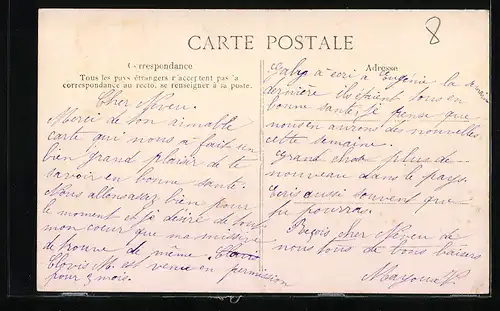 8
CARTE POSTALE
Correspondance
Tous les pays étrangers n'acceptent pas la
correspondance au recto, se renseigner à la poste.
Cher Neveu.
Merci de ton aimable
carte qui nous a faits un
bien grand plaisir de te
savoir en bonne santé.
Nous allons assez bien pour
le moment et je désire de tout
mon coeur que ma missive
te trouve de même.
Clovis M. est venu en permission
pour 3 mois.
Adresse
Gaby à ecri a Eugénie la
dernière ils étaint tous en
bonne santer je pense que
nous en aurons des nouvelles
cette semaine.
Grand chose plus de
nouveau dans le pays.
Ecris aussi souvent que
tu pourras.
Reçois cher Neveu de
nous tous de bons baisers